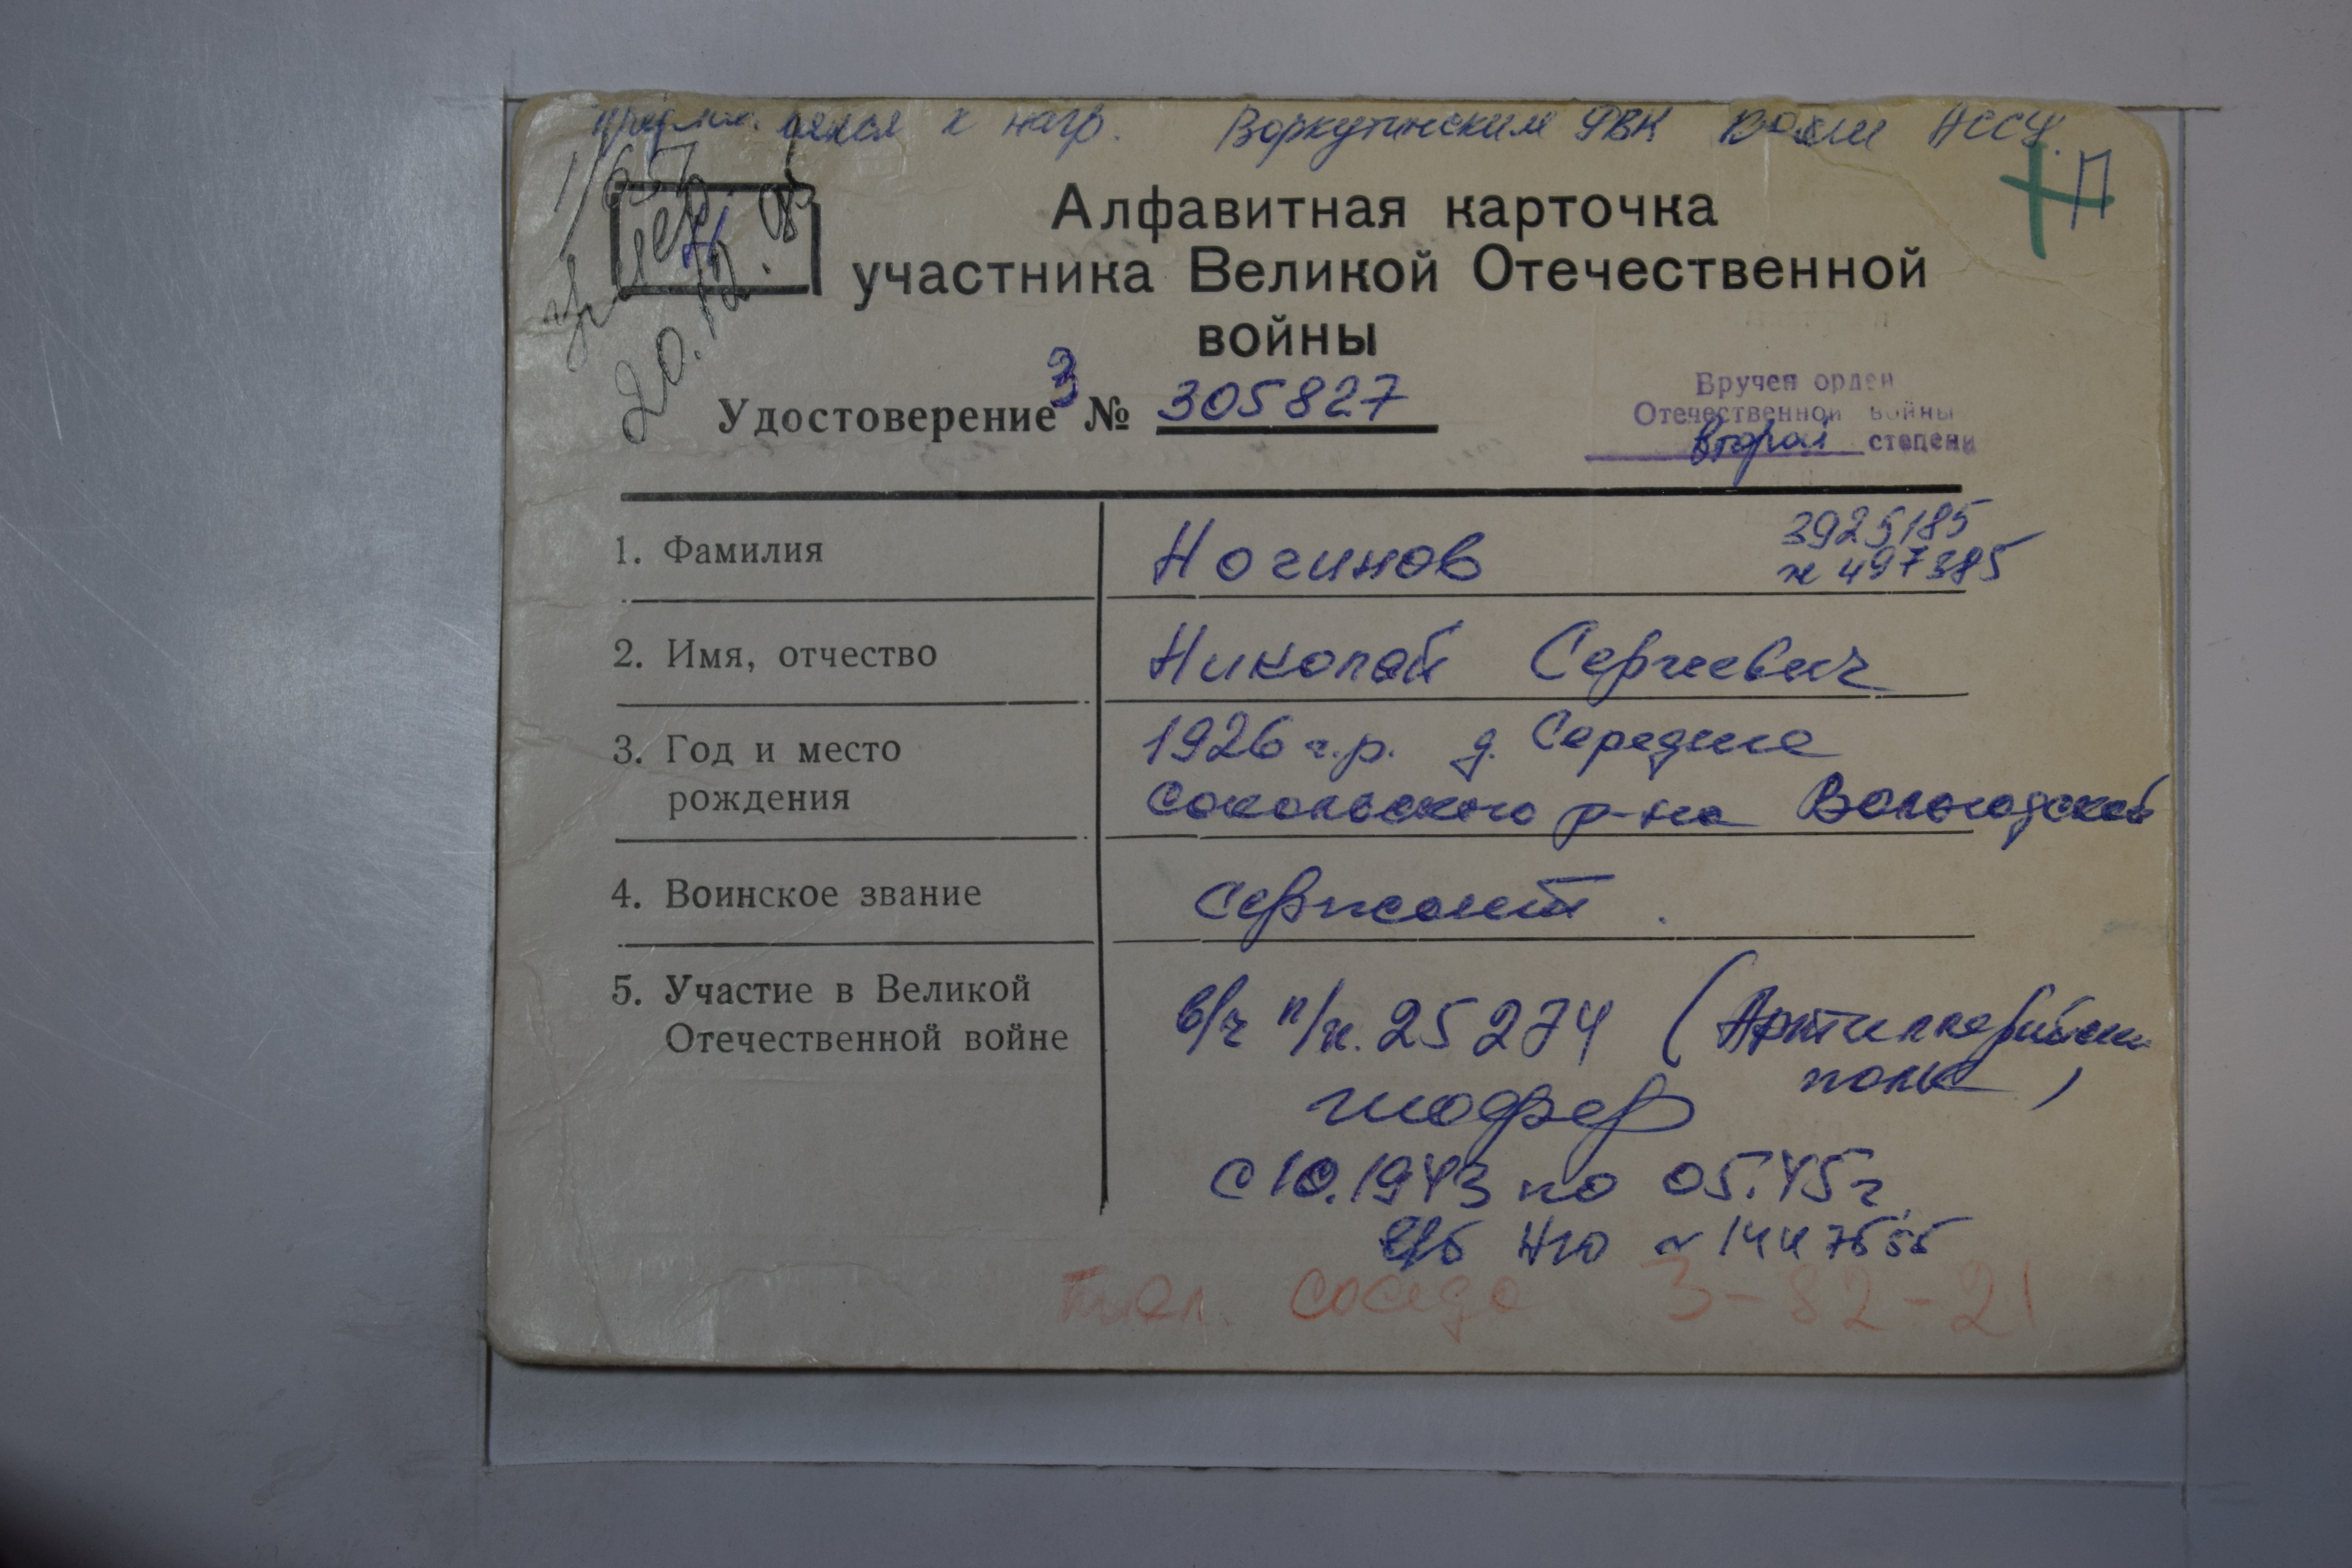 к нагр. Воркутинским РВК Коми АССР.
П
умер
20.12.
Алфавитная карточка
участника Великой Отечественной
войны
Удостоверение З № 305827
Вручен орден
Отечественной войны
второй степени
1. Фамилия
Ногинов
3925185
№ 497385
2. Имя, отчество
Николай Сергеевич
3. Год и место
рождения
1926 г.р. д. Середине
Сокольского р-на Вологодской
4. Воинское звание
Сержант.
5. Участие в Великой
Отечественной войне
в/ч п/п. 25274 (Артиллерийский
полк)
шофер
с 10.1943 по 05.45г.
в/б НЮ № 1447655
тел. соседа 3-82-21